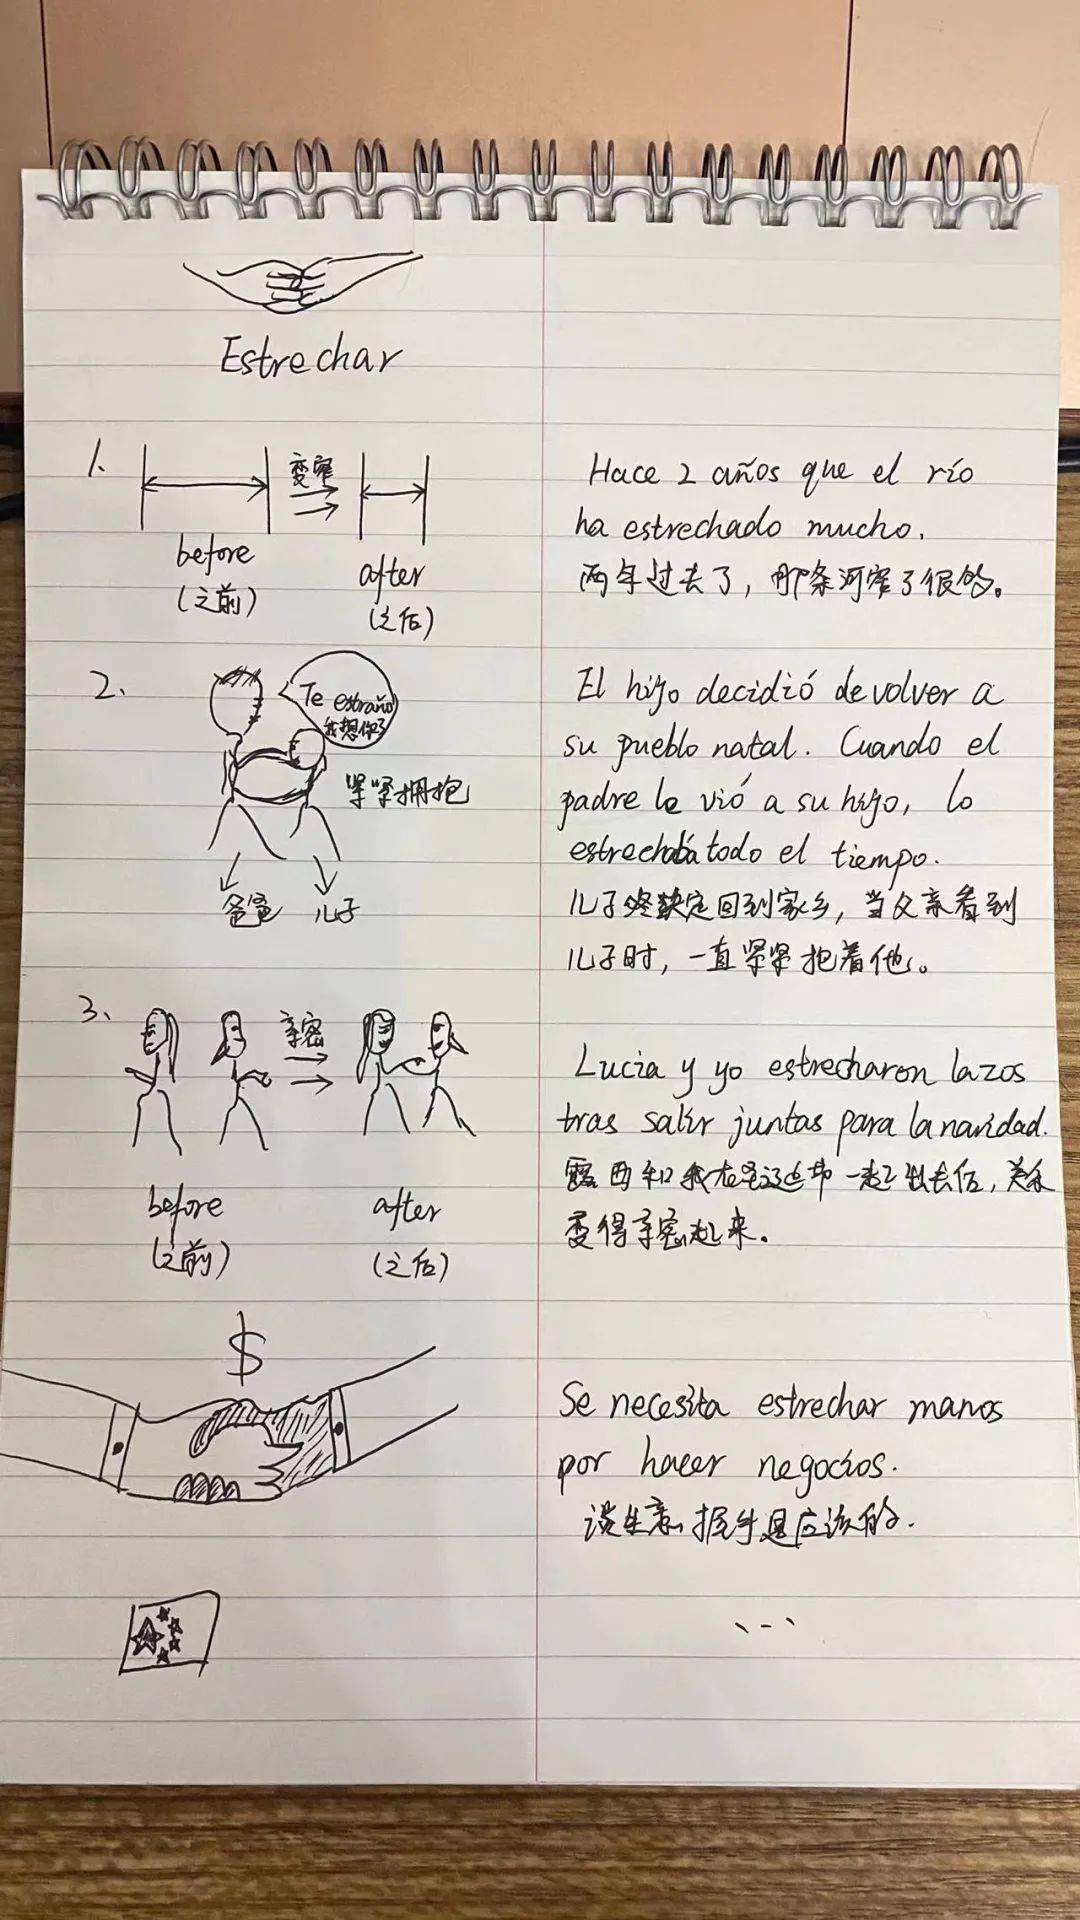 Estrechar
1.
变窄
before
(之前)
after
(之后)
Hace 2 años que el río
ha estrechado mucho.
两年过去了，那条河窄了很多。
2.
Te extraño
我想你了
紧紧拥抱
爸爸 儿子
El hijo decidió devolver a
su pueblo natal. Cuando el
padre le vió a su hijo, lo
estrechaba todo el tiempo.
儿子决定回到家乡，当父亲看到
儿子时，一直紧紧抱着他。
3.
亲密
before
(之前)
after
(之后)
Lucia y yo estrecharon lazos
tras salir juntas para la navidad.
露西和我在圣诞节一起出去后，关系
变得亲密起来。
$
Se necesita estrechar manos
por hacer negocios.
谈生意握手是应该的.